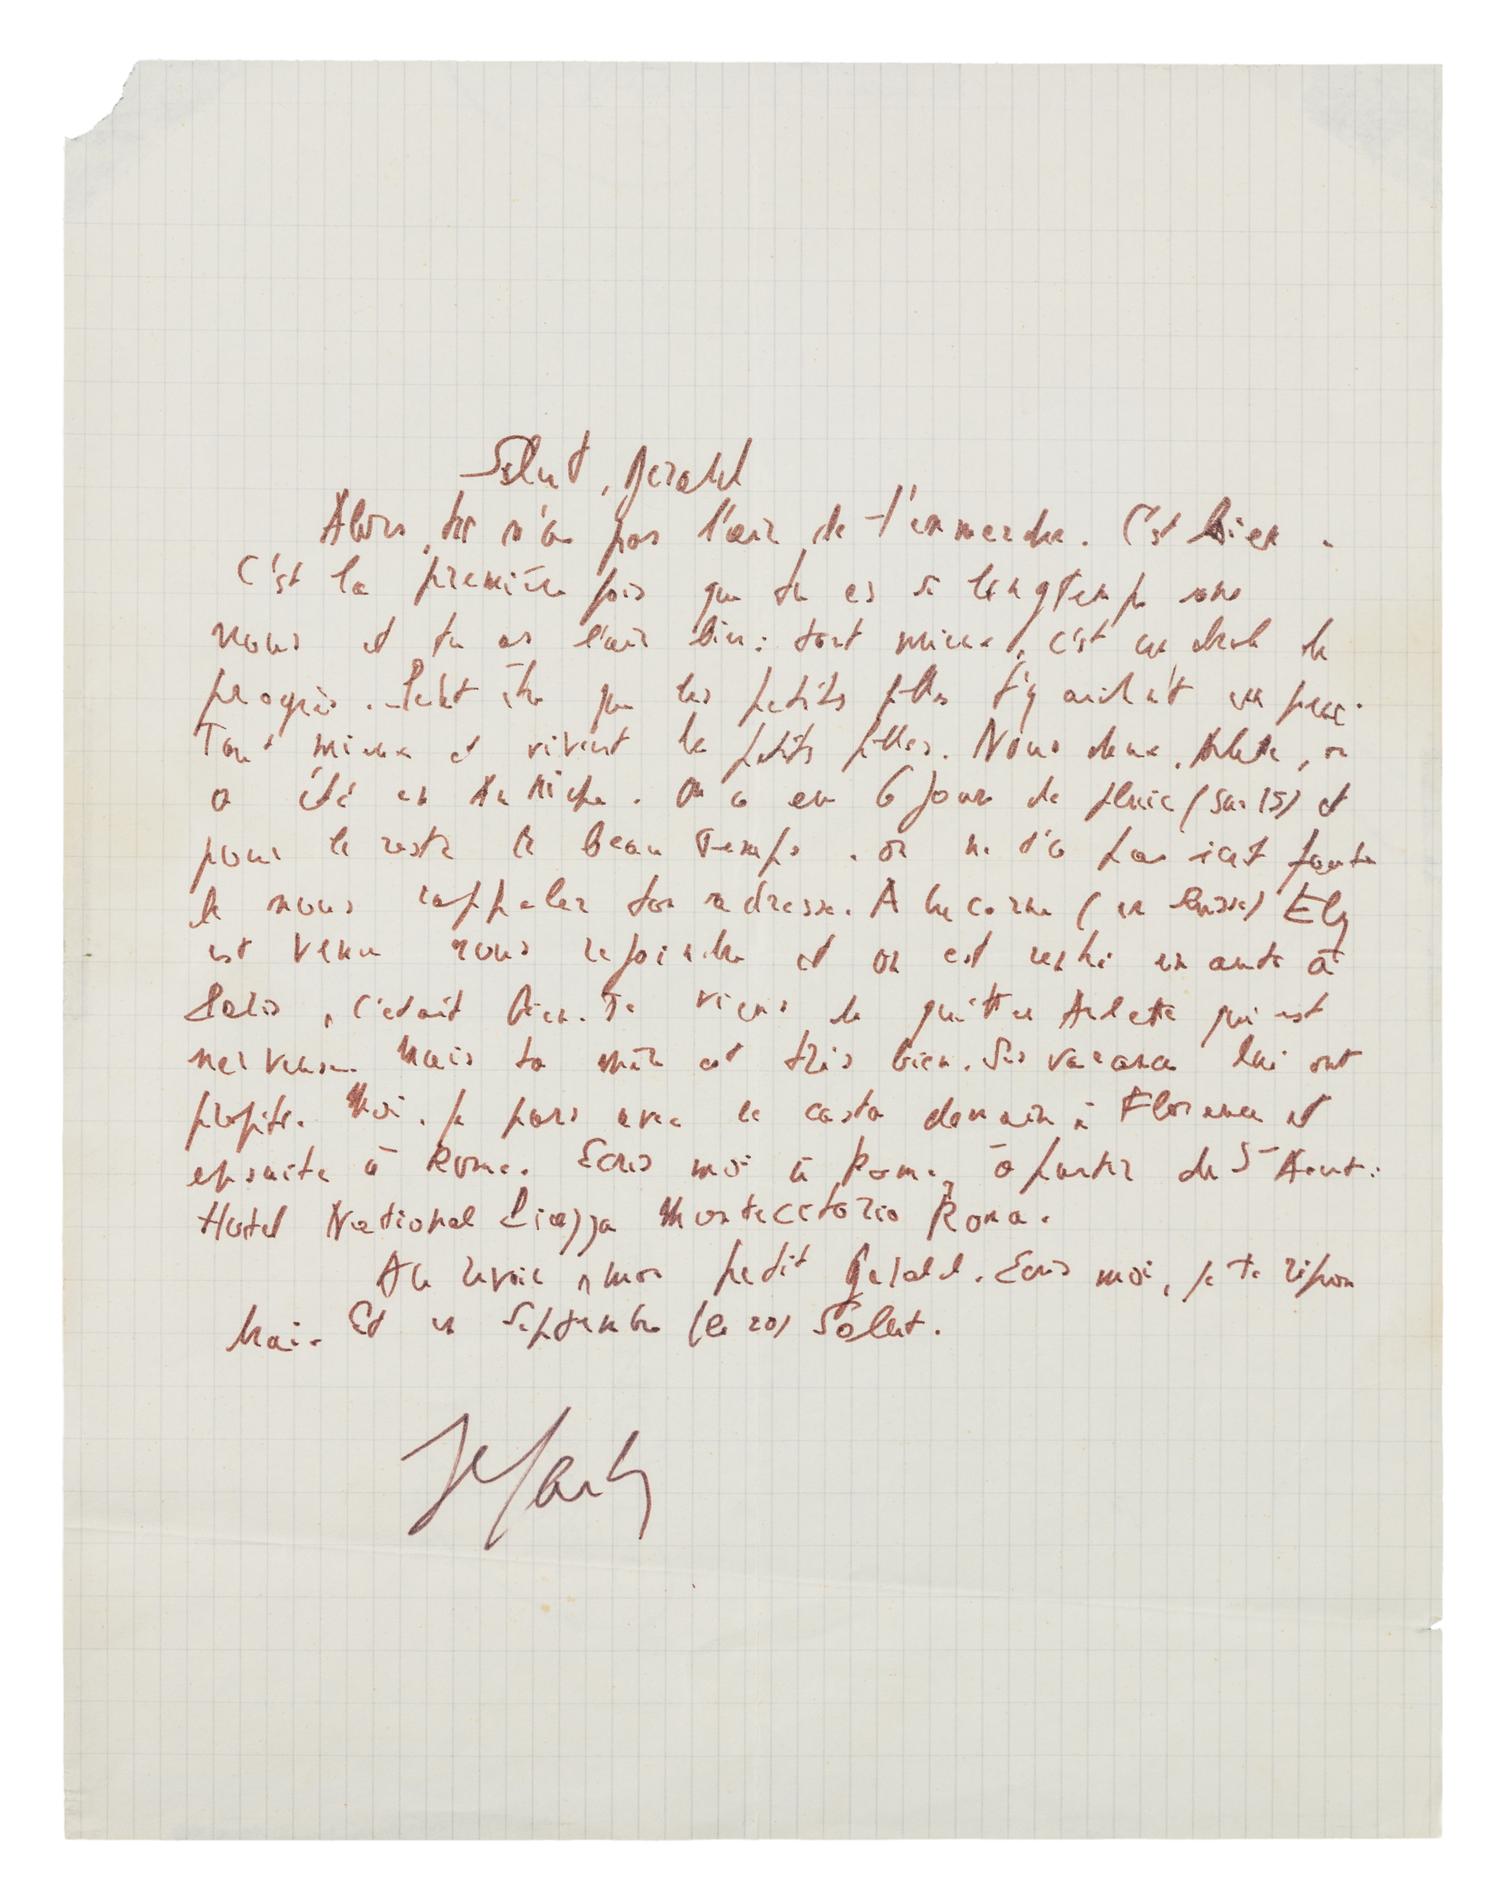 Salut, Gérald
Alors, tu n'as pas l'air de t'emmerder. C'est bien.
C'est la première fois que tu es si longtemps sans
nous et tu as l'air bien : tant mieux, c'est un drole de
progrès. Peut être que les petites filles t'y aident un peu.
Tant mieux et vivent les petites filles. Nous deux, Arlette, on
a été en Autriche. On a eu 6 jours de pluie (sur 15) et
pour le reste le beau temps. on ne t'a pas écrit faute
de nous rappeler ton adresse. A Lucerne (en Suisse) Ely
est venu nous rejoindre et on est rentré en auto à
Paris, c'était bien. Je viens de quitter Arlette qui est
nerveuse. Mais ta mère est très bien. Ses vacances lui ont
profité. Moi, je pars avec le casto demain à Florence et
ensuite à Rome. Ecris moi à Rome, à partir du 5 Aout :
Hotel National Piazza Montecitorio Roma.
Au revoir, mon petit Gérald. Ecris moi, je te répon
drai. Et en Septembre (le 20) Salut.